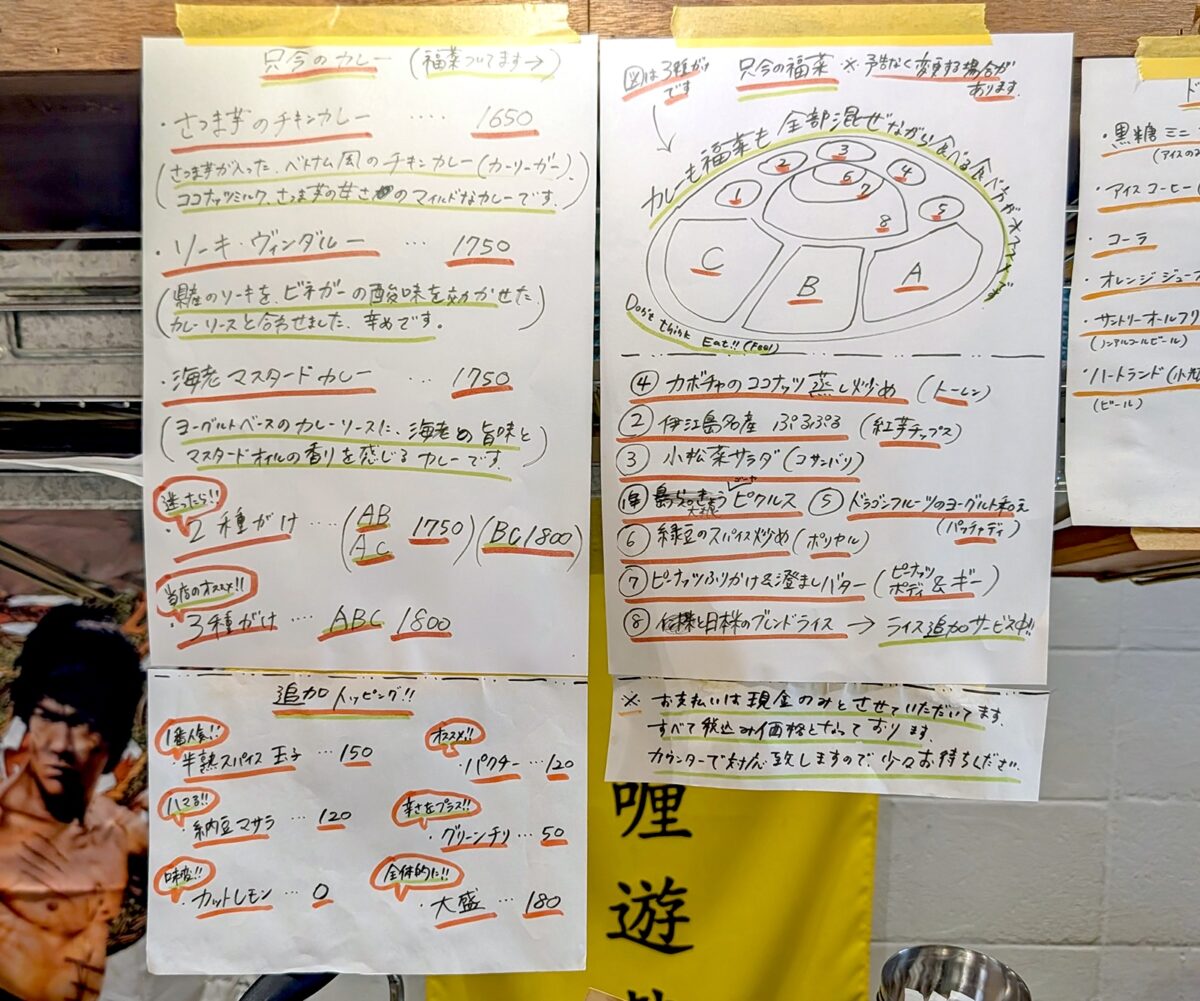 只今のカレー (福菜ついてます→)
・さつま芋のチキンカレー ‥‥ 1650
(さつま芋が入った、ベトナム風のチキンカレー(カーリーガー)、
ココナッツミルク、さつま芋の甘さのマイルドなカレーです。)
・ソーキ・ヴィンダルー ‥‥ 1750
(県産のソーキを、ビネガーの酸味を効かせた
カレーソースと合わせました、辛めです。)
・海老マスタードカレー 1750
(ヨーグルトベースのカレーソースに、海老の旨味と
マスタードオイルの香りを感じるカレーです。)
迷ったら!!
・2種がけ ‥‥ (AB AC 1750)(BC 1800)
当店のオススメ!!
・3種がけ ‥‥ ABC 1800
追加トッピング!!
1番人気!!
・半熟スパイス玉子 ‥‥ 150
オススメ!!
・パクチー ‥‥ 120
ハマる!!
・納豆マサラ ‥‥ 120
辛さをプラス!!
・グリーンチリ ‥‥ 50
味変!!
・カットレモン ‥‥ 0
全体的に!!
・大盛 ‥‥ 180
図は3種がけ
です
只今の福菜 ※予告なく変更する場合が
あります。
カレーも福菜も全部混ぜながら食べる食べ方が
1
2
3
4
5
6
7
8
C
B
A
Don't think
Eat!! (Feel)
④ カボチャのココナッツ蒸し炒め (トーレン)
② 伊江島名産 ぷるぷる (紅芋チップス)
③ 小松菜サラダ (コサンバリ)
ピクルス ⑤ ドラゴンフルーツのヨーグルト和え
(パッチャディ)
⑥ 緑豆のスパイス炒め (ポリヤル)
⑦ ピーナッツふりかけ&澄ましバター (ピーナッツポディ&ギー)
⑧ と日本株のブレンドライス → ライス追加サービス中!!
※ お支払いは現金のみとさせていただいてます。
すべて税込み価格となっております。
カウンターで対応致しますので少々お待ちください。
ド
・黒糖ミニ
(アイスのみ
・アイスコーヒー(
・コーラ
・オレンジジュース
・サントリーオールフリ
(ノンアルコールビール)
・ハートランド(小瓶
(ビール)
喱
遊